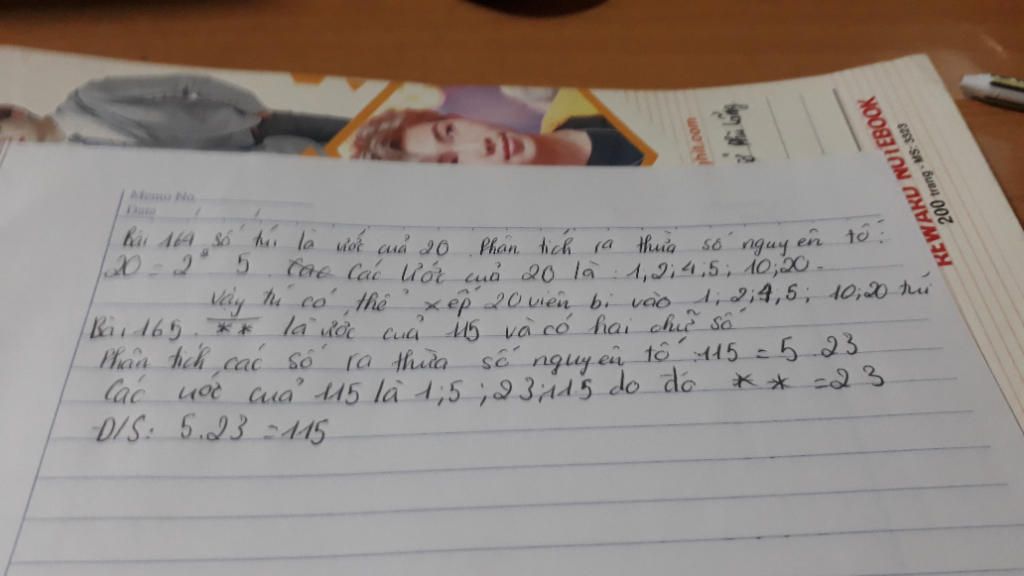 Memo No.
Date / /
Bài 164 số túi là ước cuả 20. Phân tích ra thừa số nguyên tố:
20 = 2² 5 Các ước cuả 20 là : 1, 2; 4; 5; 10; 20.
vậy tú có thể xếp 20 viên bi vào 1; 2; 4, 5; 10; 20 túi
Bài 165. ** là ước cuả 115 và có hai chữ số
Phân tích các số ra thừa số nguyên tố 115 = 5 . 23
Các ước cuả 115 là 1; 5 ; 23; 115 do đó ** = 23
D/S: 5.23 = 115
KEWAKU NOTEBOOK
200 trang - MS: 3323